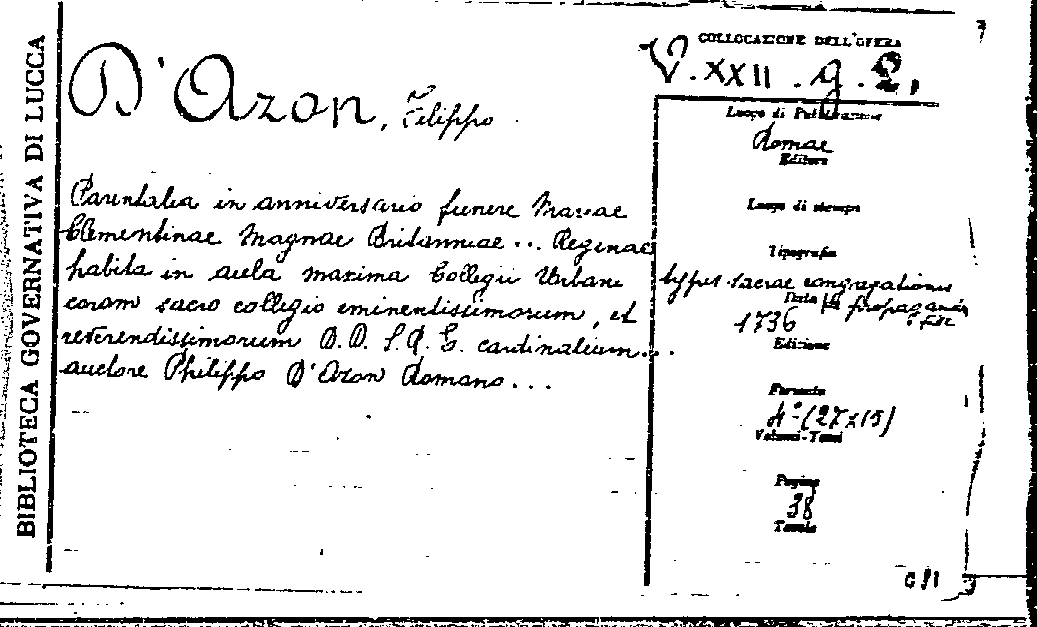 BIBLIOTECA GOVERNATIVA DI LUCCA
D'Azon, Filippo
Parentalia in anniversario funere Mariae
Clementinae Magnae Britanniae ... Reginae
habita in aula maxima Collegii Urbani
coram sacro collegio eminentissimorum, et
reverendissimorum D.D. S.R.E. cardinalium...
auctore Philippo D'Azon Romano...
COLLOCAZIONE DELL'OPERA
V. XXII. g. 2.
Luogo di Pubblicazione
Romae
Editore
Luogo di stampa
Tipografia
typis sacrae congregationis
Data de propaganda
1736 fide
Edizione
Formato
4° (27x19)
Volumi-Tomi
Pagine
38
Tavole